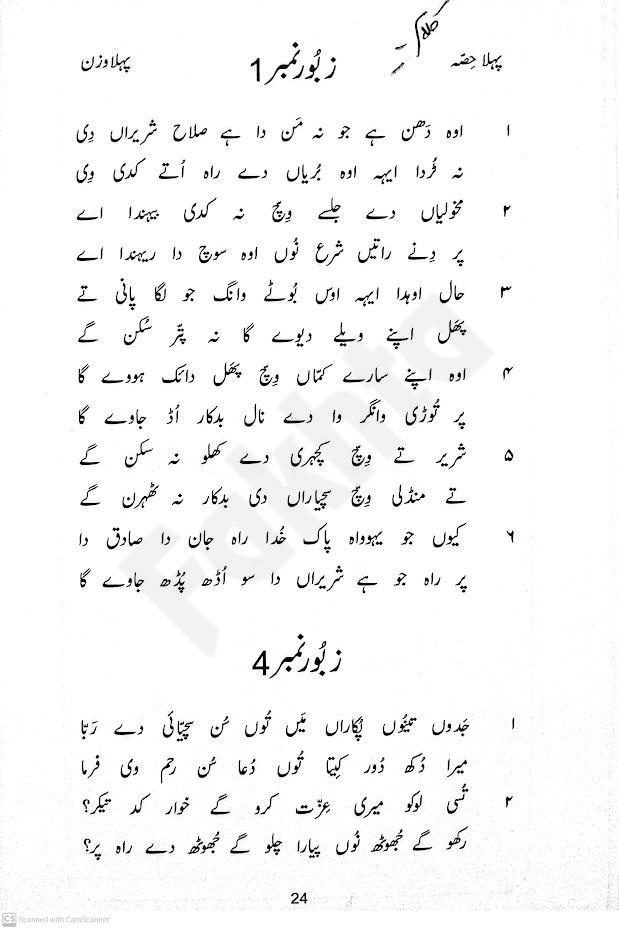 پہلا حِصّہ
زبُور نمبر 1
پہلا وزن
۱ اوہ دَھن ہے جو نہ مَن دا ہے صلاح شریراں دِی
نہ ٹُردا ایہہ اوہ بُریاں دے راہ اُتے کدی وِی
۲ مخولیاں دے جلسے وِچ نہ کدی بیہندا اے
پر دِنے راتیں شرع نُوں اوہ سوچ دا ریہندا اے
۳ حال اوہدا ایہہ اوس بُوٹے وانگ جو لگا پانی تے
پَھل اپنے ویلے دیوے گا نہ پتّر سُکن گے
۴ اوہ اپنے سارے کمّاں وِچ پَھل دائک ہووے گا
پر تُوڑی وانگر وا دے نال بدکار اُڈ جاوے گا
۵ شریر تے وِچّ کچہری دے کھلو نہ سکن گے
تے منڈلی وِچّ سچیاراں دی بدکار نہ ٹھہرن گے
۶ کیوں جو یہوواہ پاک خُدا راہ جان دا صادق دا
پر راہ جو ہے شریراں دا سو اُڈھ پُڈھ جاوے گا
زبُور نمبر 4
۱ جَدوں تینُوں پُکاراں مَیں تُوں سُن سچّیائی دے رَبّا
میرا دُکھ دُور کِیتا تُوں دُعا سُن رحم وی فرما
۲ تُسی لوکو میری عِزّت کرو گے خوار کد تیکر؟
رکھو گے جُھوٹھ نُوں پیارا چلو گے جُھوٹھ دے راہ پر؟
24
Fakhta
CS Scanned with CamScanner